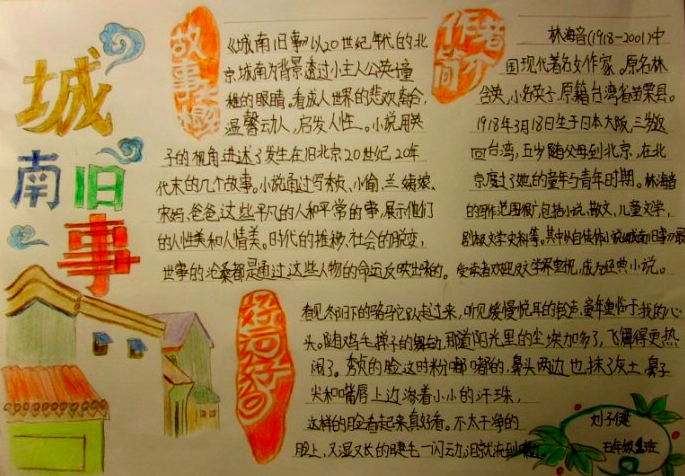 城南旧事
故事梗概
《城南旧事》以20世纪年代的北
京城南为背景透过小主人公英子童
稚的眼睛。看成人世界的悲欢离合,
温馨动人,启发人性。小说用英
子的视角讲述了发生在旧北京20世纪20年
代末的几个故事。小说通过写秀贞、小偷、兰姨娘、
宋妈、爸爸这些平凡的人和平常的事,展示他们
的人性美和人情美。时代的推移、社会的蜕变,
世事的沧桑都是通过这些人物的命运反映出来的。
作者简介
林海音(1918-2001)中
国现代著名女作家。原名林
含英,小名英子,原籍台湾省苗栗县。
1918年3月18日生于日本大阪,三岁返
回台湾,五岁随父母到北京,在北
京度过了她的童年与青年时期。林海音
的写作范围很广,包括小说、散文、儿童文学,
剧极文学史料等。其中以自传体小说城南旧事最
受读者欢迎及文学界重视,成为经典小说。
好词好句
看见冬阳下的骆驼队走过来,听见缓慢悦耳的铃声,童年重临于我的心
头。随鸡毛掸子的舞动,那道阳光里的尘埃加多了,飞舞得更热
闹了。秀贞的脸这时粉嘟嘟的,鼻头两边也抹了灰土,鼻子
尖和嘴唇上边渗着小小的汗珠,
这样的脸看起来真好看。不太干净的
脸上,又湿又长的睫毛一闪动,泪就流到嘴
刘子健
五年级1班